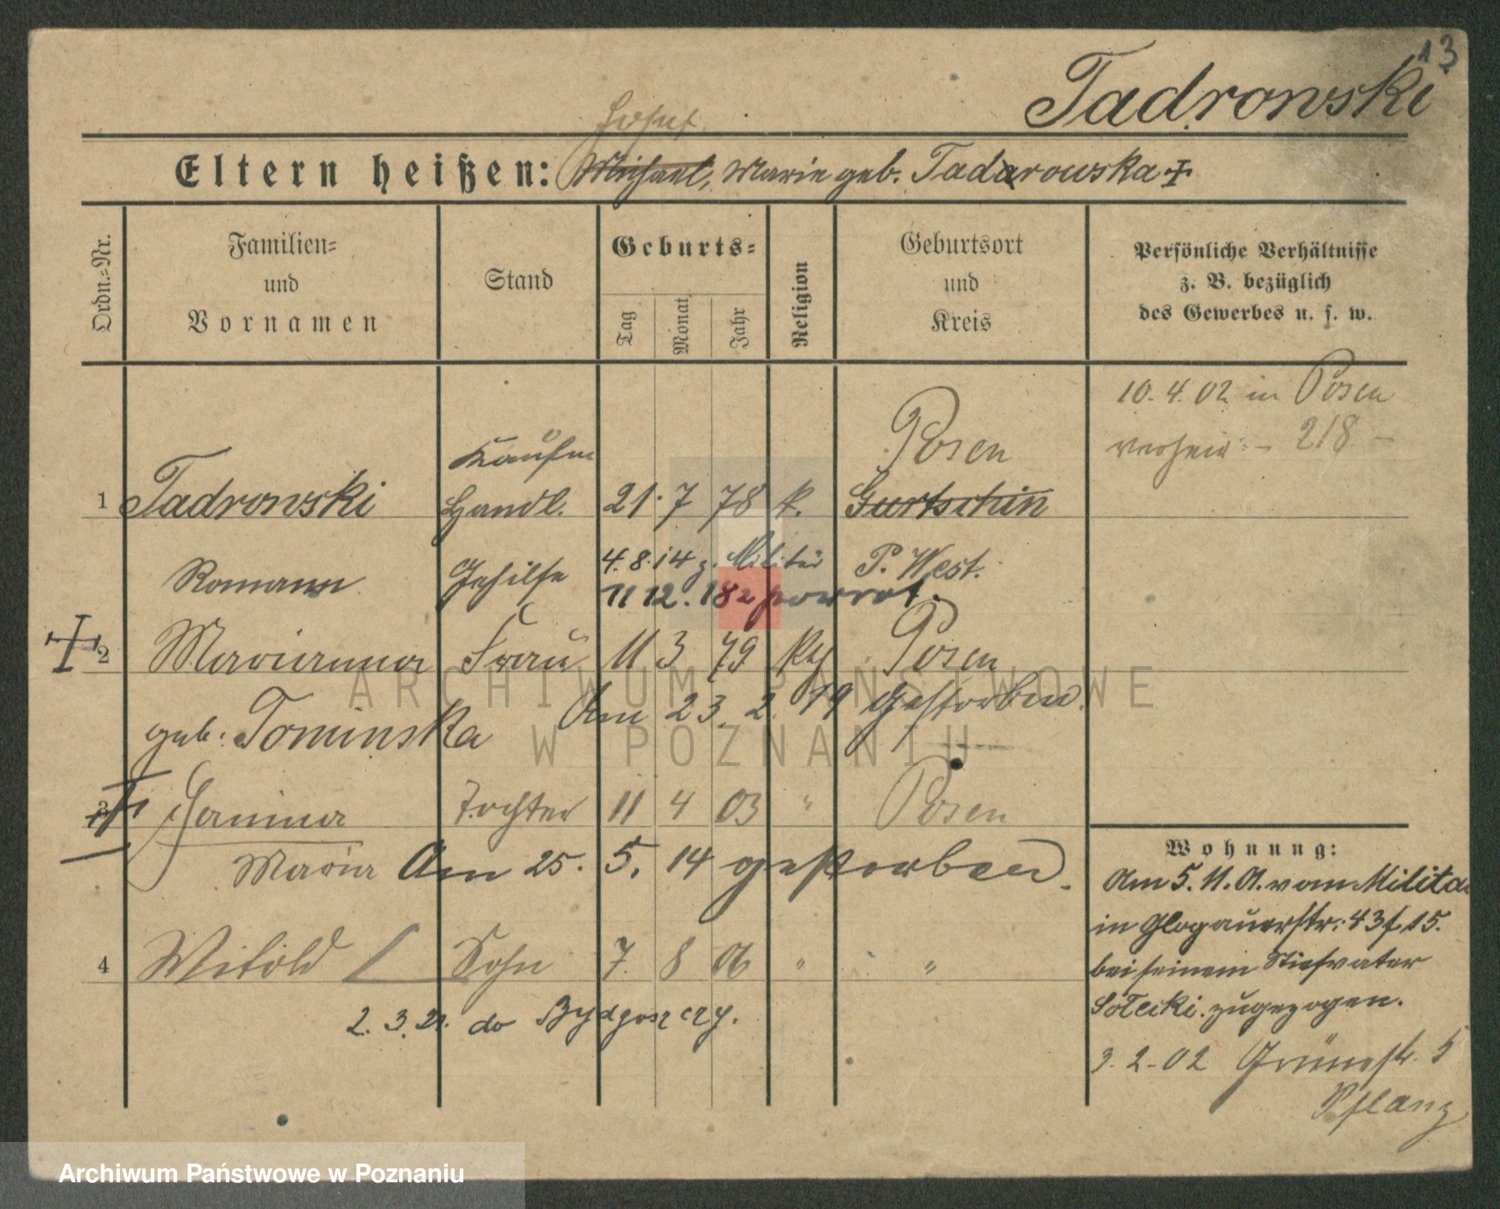 13
Tadrowski
Josef
Eltern heißen: Michael, Marie geb. Tadarowska +
Ordn.=Nr.
Familien=
und
Vornamen
Stand
Geburts=
Tag
Monat
Jahr
Religion
Geburtsort
und
Kreis
Persönliche Verhältnisse
z. B. bezüglich
des Gewerbes u. s. w.
10. 4. 02 in Posen
verheir. – 218 –
Kaufm Posen
1 Tadrowski Handl. 21. 7 78 k. Gurtschin
4. 8. 14 z. Militär P. West.
Roman Gehilfe 11 12. powrot.
+ 2 Marianna Frau 11 3 79 Posen
geb. Tominska Am 23. 2. 19 gestorben.
3 + Janina Tochter 11 4 03 " Posen
Maria Am 25. 5. 14 gestorben.
4 Witold Sohn 7. 8 06 " "
2. 3. 21. do Bydgoszczy.
Wohnung:
Am 5. 11. A. vom Militä
in Glogauerstr: 43 f 15.
bei seinem Stiefvater
Sołecki zugezogen.
3. 2. 02 Grünestr. 5
Pflanz
ARCHIWUM PAŃSTWOWE
W POZNANIU
Archiwum Państwowe w Poznaniu